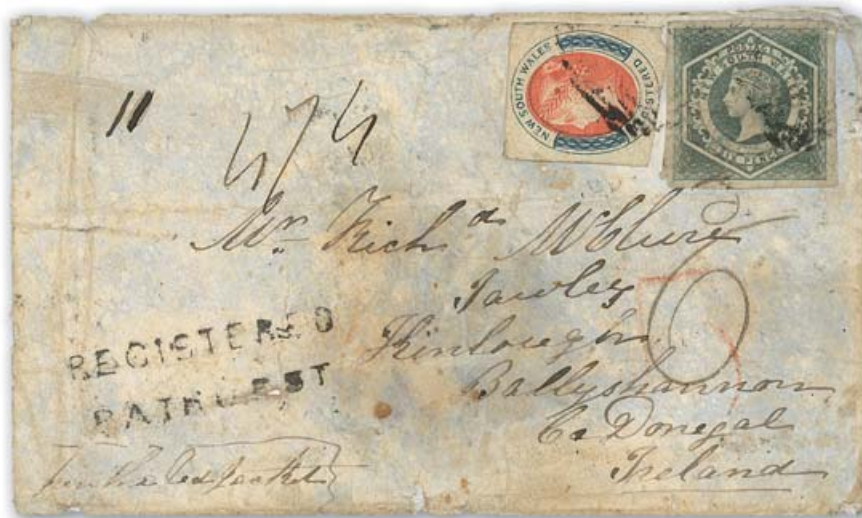 NEW SOUTH WALES
REGISTERED
POSTAGE
SOUTH WALES
SIX PENCE
11
4/4
Mr Richd McClure
Tawley
Kinlough
Ballyshannon
Co Donegal
Ireland
6
REGISTERED
BATHURST